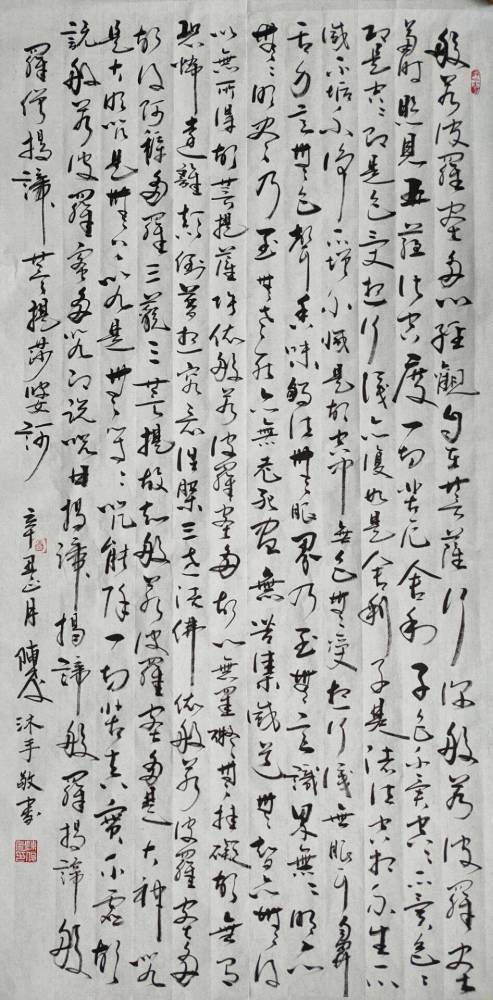 般若波羅蜜多心經觀自在菩薩行深般若波羅蜜
多時照見五蘊皆空度一切苦厄舍利子色不異空〻不異色〻
即是空〻即是色受想行識亦復如是舍利子是諸法空相不生不
滅不垢不淨不增不減是故空中無色無受想行識無眼耳鼻
舌身意無色聲香味觸法無眼界乃至無意識界無〻明亦
無〻明盡乃至無老死亦無老死盡無苦集滅道無智亦無得
以無所得故菩提薩埵依般若波羅蜜多故心無罣礙無挂礙故無有
恐怖遠離顛倒夢想究竟涅槃三世諸佛依般若波羅蜜多
故得阿耨多羅三藐三菩提故知般若波羅蜜多是大神咒
是大明咒是無上咒是無等〻咒能除一切苦真實不虛故
說般若波羅蜜多咒即說咒曰揭諦揭諦般羅揭諦般
羅僧揭諦菩提莎婆訶
辛丑正月陳沐手敬書